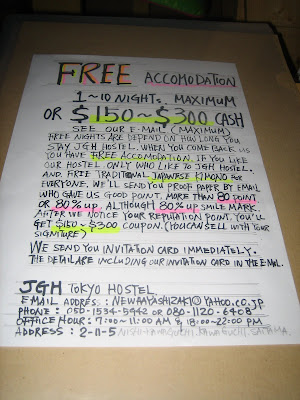 FREE ACCOMODATION
1~10 NIGHTS. MAXIMUM
OR $1150~$300 CASH
SEE OUR E-MAIL (MAXIMUM)
FREE NIGHTS ARE DEPEND ON HOW LONG YOU
STAY JGH HOSTEL. WHEN YOU COME BACK US
YOU HAVE FREE ACCOMODATION. IF YOU LIKE
OUR HOSTEL ONLY WHO LIKE TO JGH HOSTEL.
AND. FREE TRADITIONAL JAPANESE KIMONO FOR
EVERYONE. WE'LL SEND YOU PROOF PAPER BY EMAIL
WHO GAVE US GOOD POINT. MORE THAN 80 POINT
OR 80% UP. ALTHOUGH 80% UP SMILE MARK.
AFTER WE NOTICE YOUR REPUTATION POINT. YOU'LL
GET $150-$300 COUPON. (YOU CAN SELL WITH YOUR
SIGNITURE)
WE SEND YOU INVITATION CARD IMMEDIATELY.
THE DETAIL ARE INCLUDING OUR INVITATION CARD IN THE E-MAIL.
JGH TOKYO HOSTEL.
EMAIL ADDRES: NEWAAYASHIZAKI@YAHOO.CO.JP
PHONE: 050-1534-5442 OR 080-1120-6408
OFFICE HOUR: 7:00~11:00 AM & 18:00~22:00 PM
ADDRESS: 2-11-5 NISHI-KAWAGUCHI, KAWAGUCHI, SAITAMA.